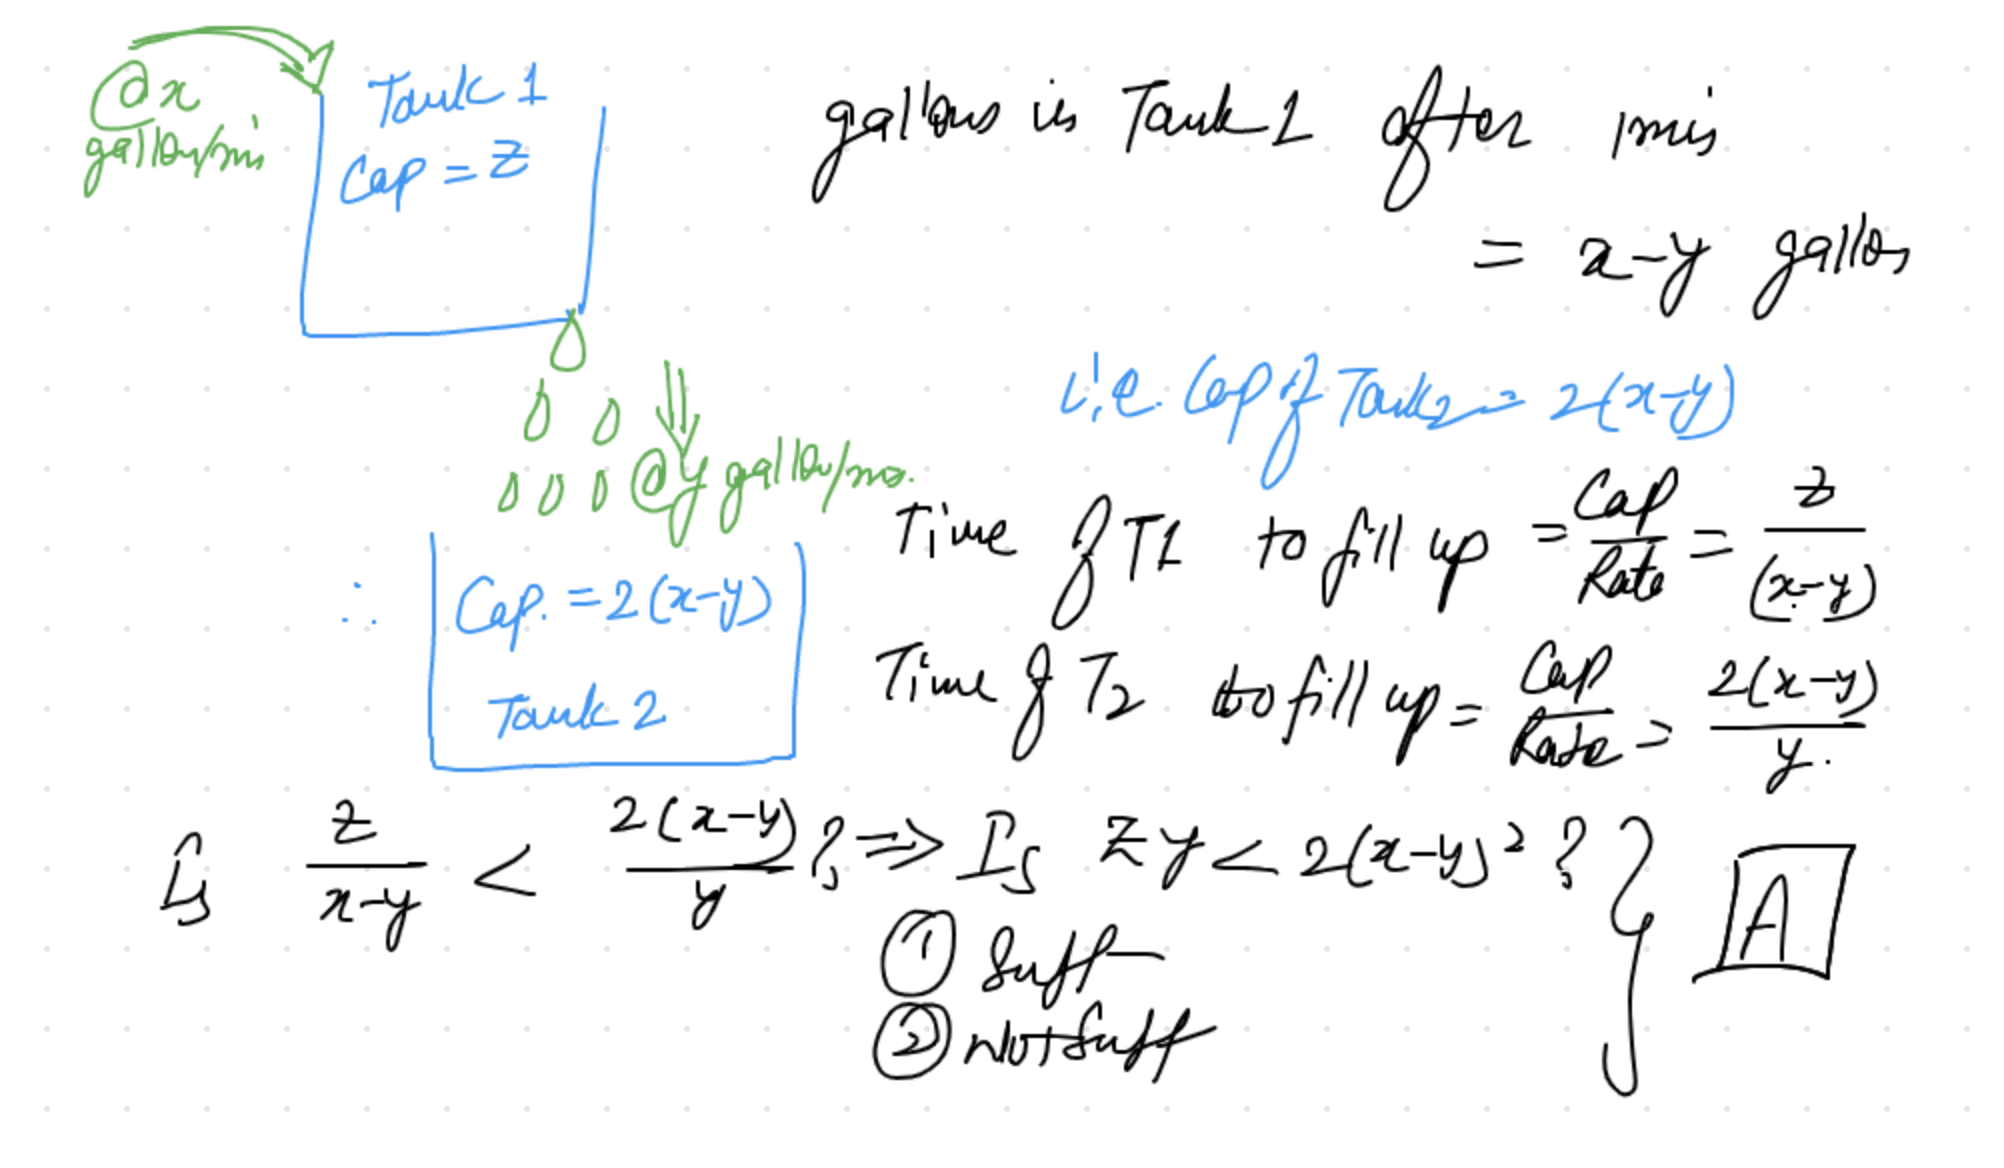 @x
gallon/min
Tank 1
Cap = Z
gallons in Tank 1 after 1 min
= x-y gallons
i.e. Cap of Tank 2 = 2(x-y)
@ y gallon/min.
Time of T1 to fill up = Cap/Rate = z/(x-y)
∴ Cap. = 2(x-y)
Tank 2
Time of T2 to fill up = Cap/Rate = 2(x-y)/y.
Is z/x-y < 2(x-y)/y ? ⇒ Is zy < 2(x-y)² ?
① Suff
② Not Suff
A